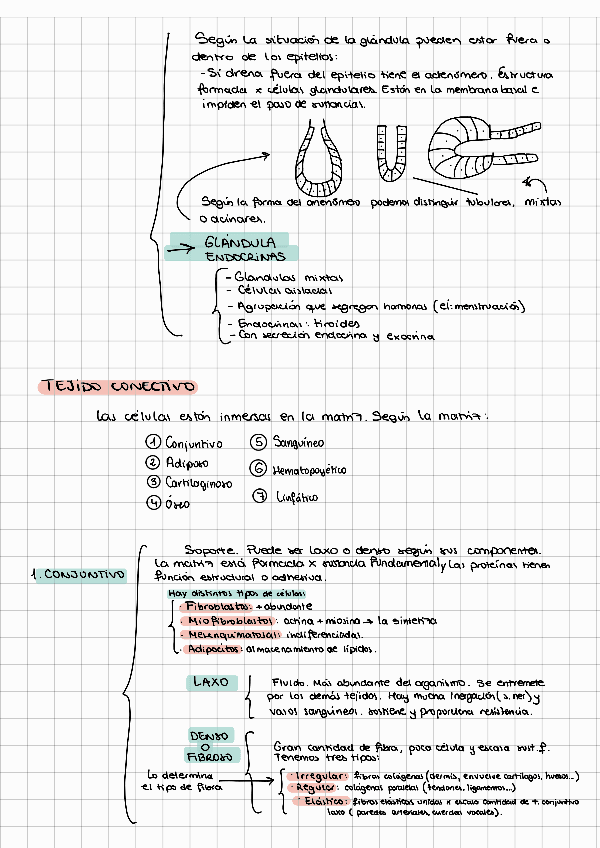 Según la situación de la glándula pueden estar fuera o
dentro de los epitelios:
- Si drena fuera del epitelio tiene el adenómero. Estructura
formada x células glandulares. Están en la membrana basal e
impiden el paso de sustancias.
Según la forma del adenómero podemos distinguir tubulares, mixtas
o acinares.
→ GLÁNDULA
ENDOCRINAS
- Glandulas mixtas
- Células aisladas
- Agrupación que segregan hormonas (ej: menstruación)
- Endocrinas: tiroides
- Con secreción endocrina y exocrina
TEJIDO CONECTIVO
Las células están inmersas en la matriz. Según la matriz:
① Conjuntivo
② Adiposo
③ Cartilaginoso
④ Óseo
⑤ Sanguíneo
⑥ Hematopoyético
⑦ Linfático
1. CONJUNTIVO
Soporte. Puede ser laxo o denso según sus componentes.
La matriz está formada x sustancia fundamental y las proteínas tienen
función estructural o adhesiva.
Hay distintos tipos de células:
· Fibroblastos: + abundante
· Miofibroblastos: actina + miosina → la sintetiza
· Mesenquimatosas: indiferenciadas.
· Adipocitos: almacenamiento de lípidos.
LAXO
Fluido. Más abundante del organismo. Se entremete
por los demás tejidos. Hay mucha inervación (s. ner) y
vasos sanguíneos. Sostiene y proporciona resistencia.
DENSO
O
FIBROSO
Gran cantidad de fibra, poca célula y escasa sust. f.
Tenemos tres tipos:
Lo determina
el tipo de fibra
· Irregular: fibras colágenas (dermis, envuelve cartílagos, huesos...)
· Regular: colágenas paralelas (tendones, ligamentos...)
· Elástico: fibras elásticas unidas x escasa cantidad de t. conjuntivo
laxo (paredes arteriales, cuerdas vocales).